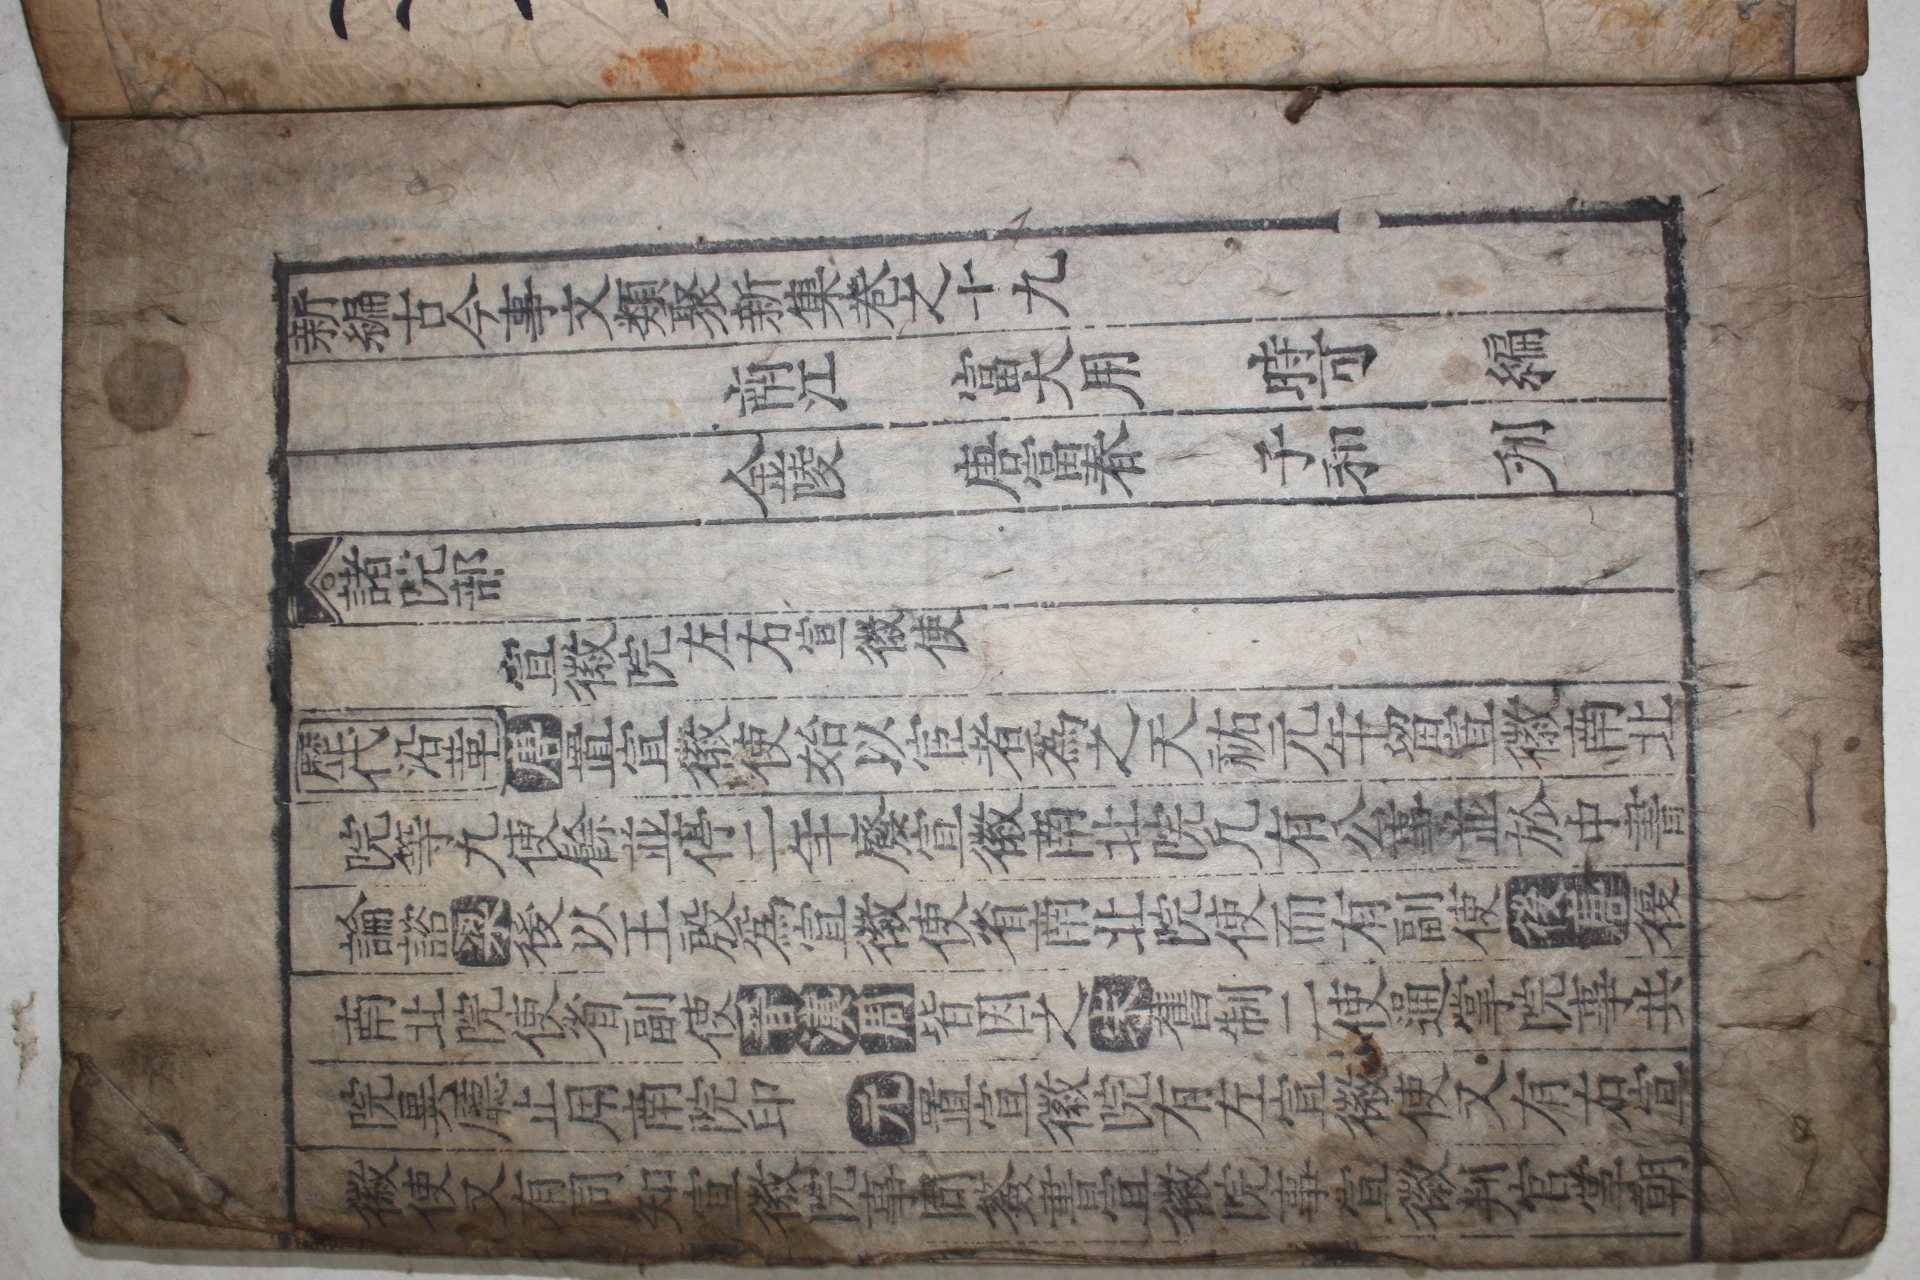 新編古今事文類聚新集卷之十九
南江 富大用 時可 編
金陵 唐富春 子和 刋
諸院部
宣徽院左右宣徽使
歷代沿革唐置宣徽使始以宦者為之天祐元年留宣徽南北
院等九使餘並停二年廢宣徽南北院凡有公事並於中書
論諮梁後以王殷為宣徽使省南北院使而有副使後唐復
南北院使省副使晋漢周皆因之宋舊制二使通掌院事共
院異廳止用南院印 元置宣徽院有左宣徽使又有右宣
徽使又有同知宣徽院事同簽書宣徽院事宣徽判官掌朝